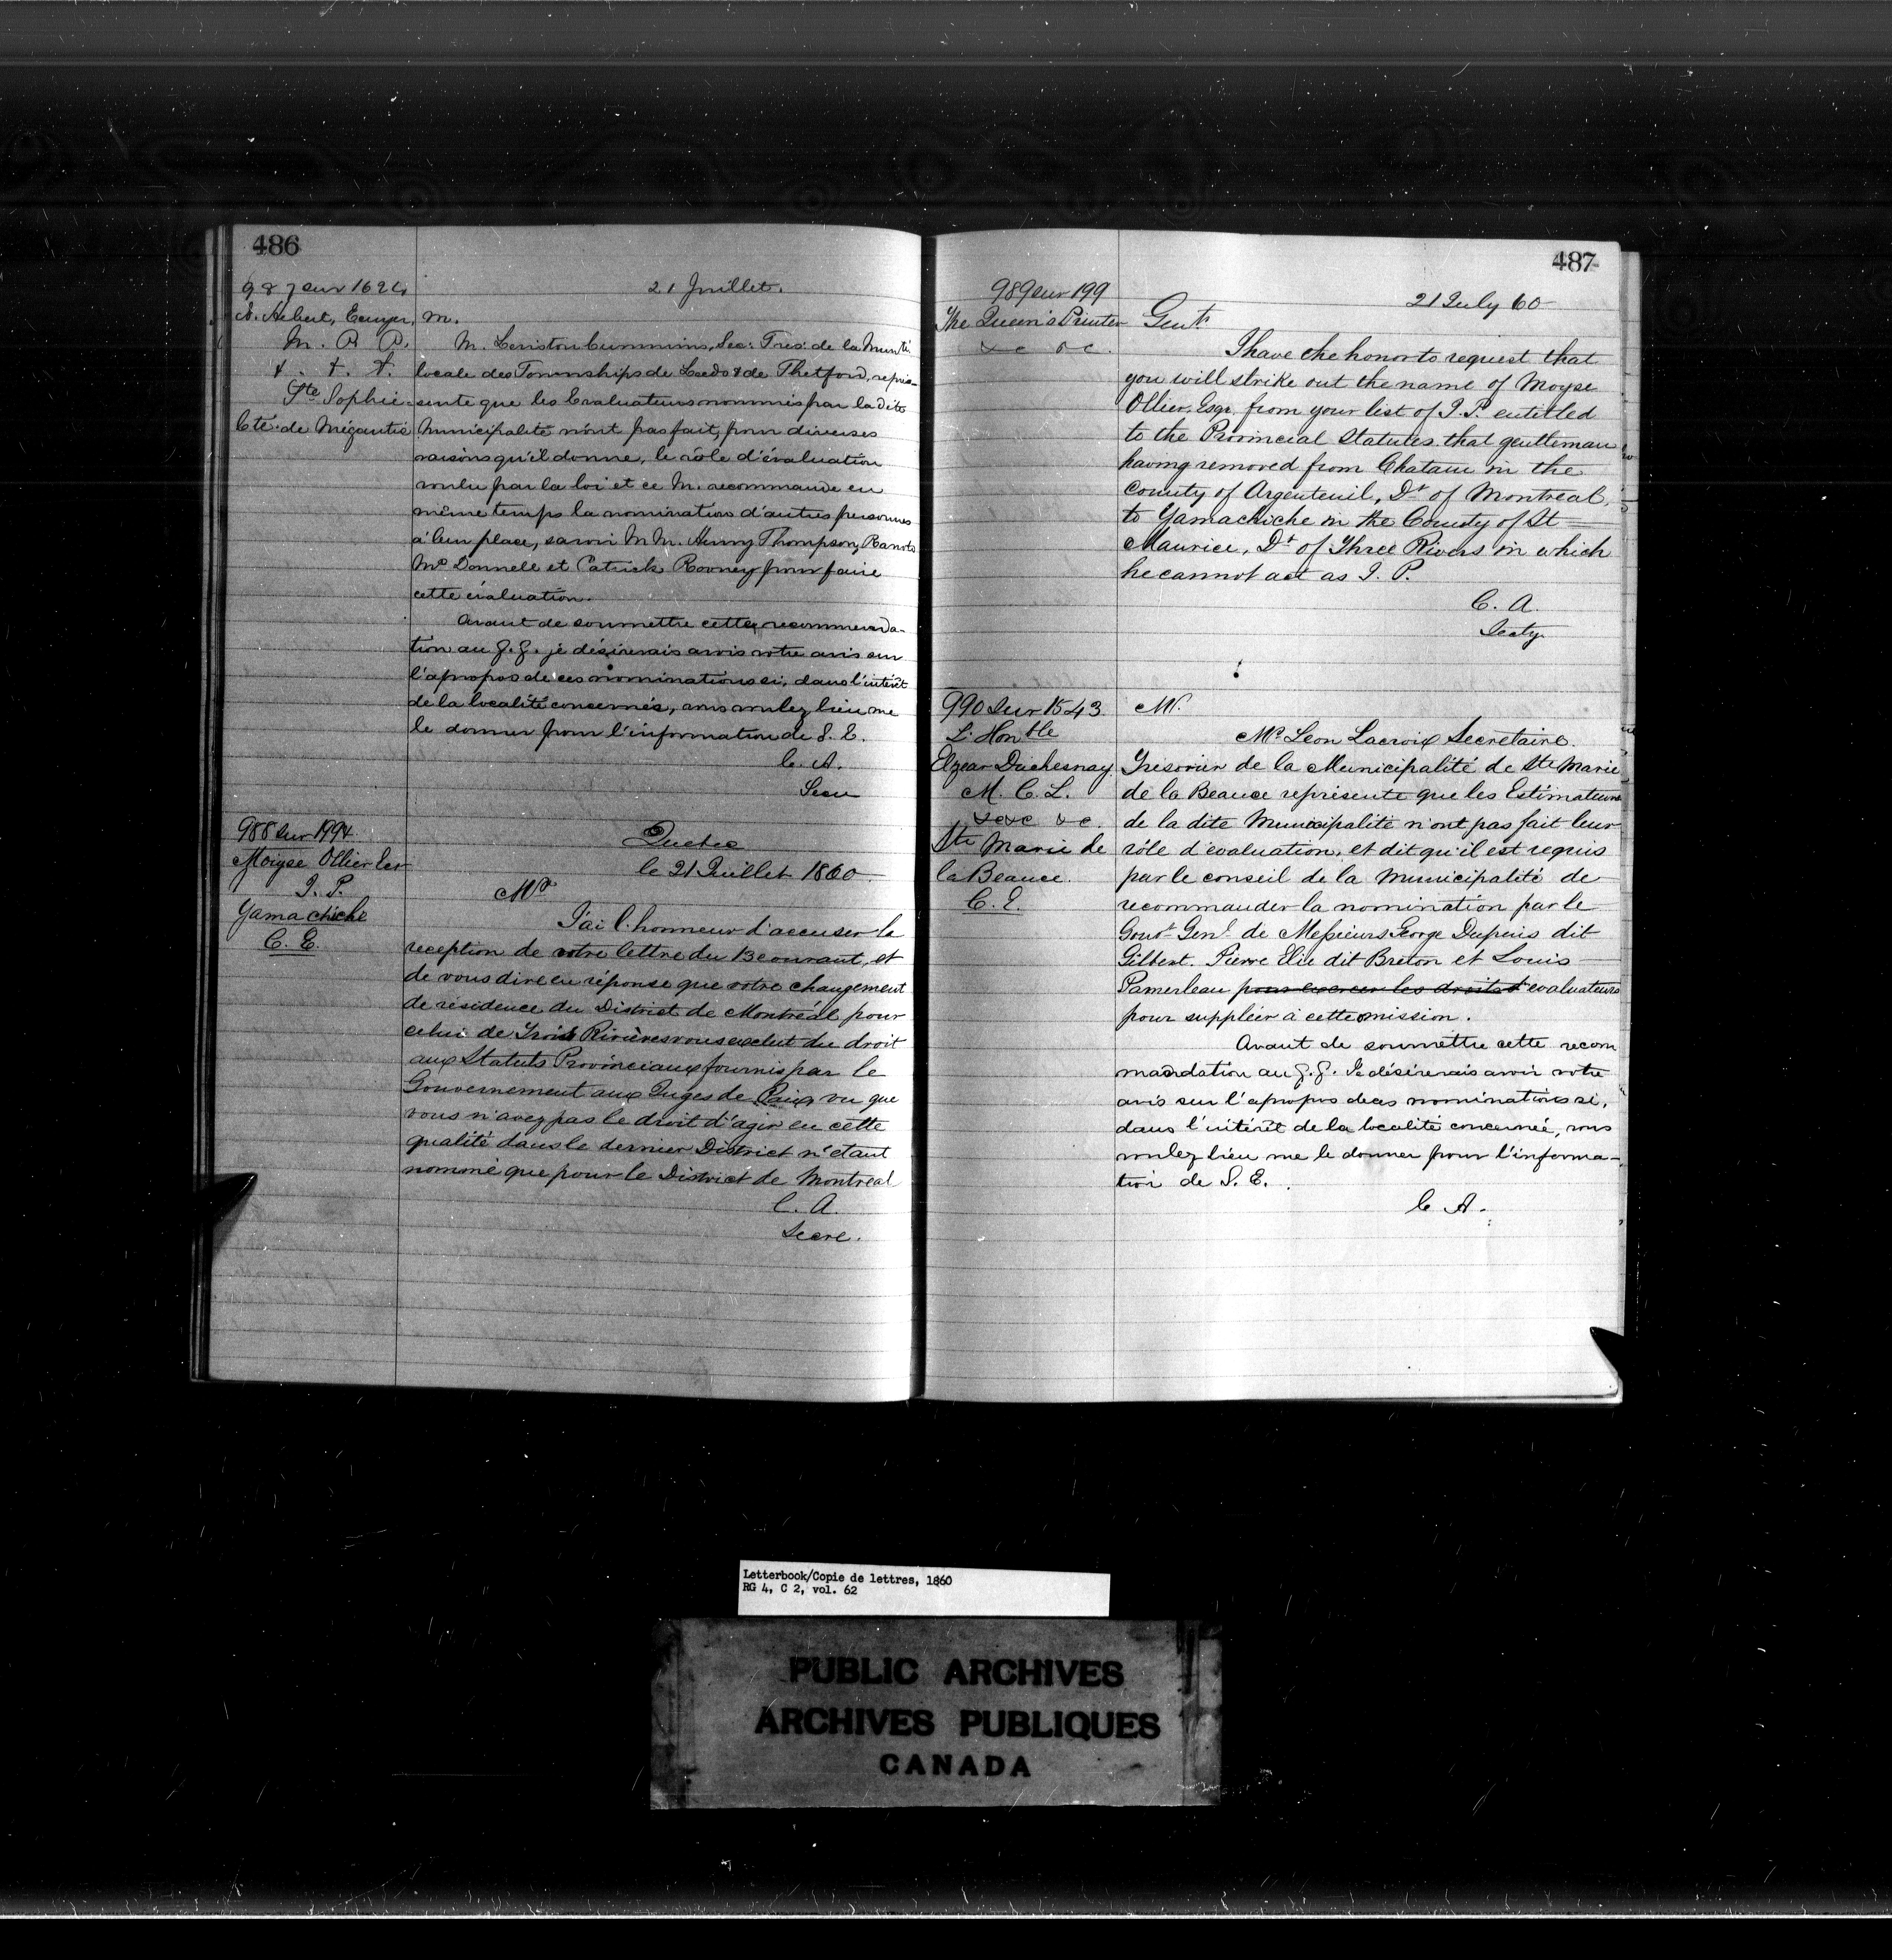 486
987 sur 1624
21 Juillet.
N. Hebert, Ecuyer,
M. P. P.
&. &. &.
Ste Sophie
Cté. de Mégantic
M.
M. Cummins, Sec: Tres: de la Munté.
locale des Townships de Leeds & de Thetford, repré-
sente que les Evaluateurs nommés par la dite
Municipalité n'ont pas fait, pour diverses
raisons qu'il donne, le rôle d'évaluation
voulu par la loi et ce M. recommande en
même temps la nomination d'autres personnes
à leur place, savoir M M. Henry Thompson,
Mc Donnell et Patrick Rooney pour faire
cette évaluation.
Avant de soumettre cette recommenda-
tion au G. G. je désirerais avoir votre avis sur
l'apropos de ces nominations si, dans l'intérêt
de la localité concernée, vous voulez bien me
le donner pour l'information de S. E.
C. A.
Secre
988 sur 1994
Moyse Ollier Ecr
J. P.
Yamachiche
C. E.
Quebec
le 21 Juillet 1860
Mr
J'ai l'honneur d'accuser la
reception de votre lettre du 13 courant, et
de vous dire en réponse que votre changement
de résidence du District de Montréal pour
celui de Trois Rivières vous exclut du droit
aux Statuts Provinciaux fournis par le
Gouvernement aux Juges de Paix vu que
vous n'avez pas le droit d'agir en cette
qualité dans le dernier District n'étant
nommé que pour le District de Montreal
C. A.
Secre.
487
989 sur 199
The Queen's Printer
&c &c.
21 July 60
Gents
I have the honor to request that
you will strike out the name of Moyse
Ollier, Esqr. from your list of J. P. entitled
to the Provincial Statutes, that gentleman
having removed from Chatam in the
County of Argenteuil, Dt of Montreal,
to Yamachiche in the County of St
Maurice, Dt of Three Rivers in which
he cannot act as J. P.
C. A.
Secty.
990 sur 1543
L'Honble
Elzear Duchesnay
M. C. L.
&c &c &c.
Ste Marie de
la Beauce.
C. E.
Mr.
Mr Leon Lacroix Secretaire
Tresorier de la Municipalité de Ste Marie
de la Beauce représente que les Estimateurs
de la dite Municipalité n'ont pas fait leur
rôle d'evaluation, et dit qu'il est requis
par le conseil de la Municipalité de
recommander la nomination par le
Gouvr Genl de Messieurs George Dupuis dit
Gilbert. Pierre Elie dit Breton et Louis
Pamerleau pour exercer les droits d'evaluateurs
pour suppléer à cette omission.
Avant de soumettre cette recom
mandation au G. G. Je désirerais avoir votre
avis sur l'apropos de ces nominations si,
dans l'intérêt de la localité concernée, vous
voulez bien me le donner pour l'informa-
tion de S. E.
C. A.
Letterbook/Copie de lettres, 1860
RG 4, C 2, vol. 62
PUBLIC ARCHIVES
ARCHIVES PUBLIQUES
CANADA